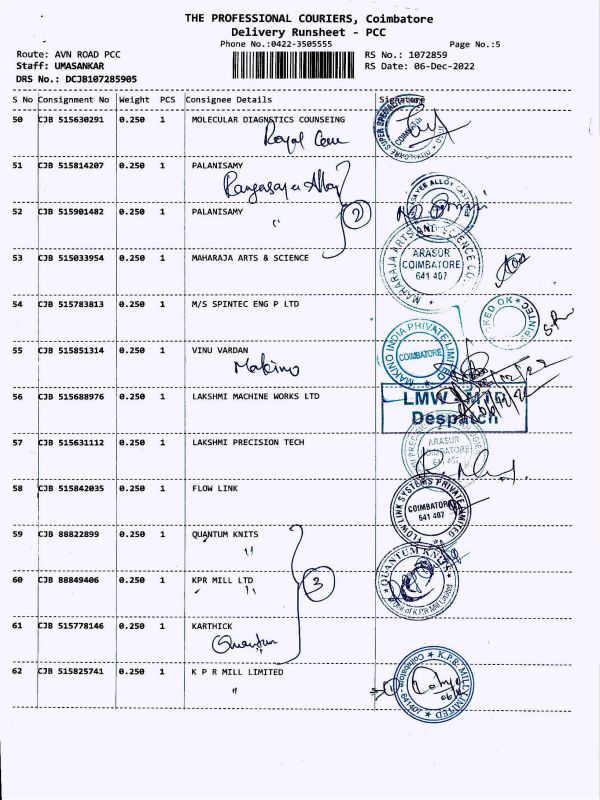 THE PROFESSIONAL COURIERS, Coimbatore
Delivery Runsheet - PCC
Phone No.:0422-3505555 Page No.:5
Route: AVN ROAD PCC RS No.: 1072859
Staff: UMASANKAR RS Date: 06-Dec-2022
DRS No.: DCJB107285905
S No Consignment No Weight PCS Consignee Details Signature
50 CJB 515630291 0.250 1 MOLECULAR DIAGNTICS COUNSEING
Royal Care
51 CJB 515814207 0.250 1 PALANISAMY
Rangasayee Alloy
52 CJB 515901482 0.250 1 PALANISAMY
2
53 CJB 515033954 0.250 1 MAHARAJA ARTS & SCIENCE
MAHARAJA ARTS AND SCIENCE
ARASUR
COIMBATORE
641 407
54 CJB 515783813 0.250 1 M/S SPINTEC ENG P LTD
55 CJB 515851314 0.250 1 VINU VARDAN
Makino
MAKINO INDIA PRIVATE LIMITED
COIMBATORE
56 CJB 515688976 0.250 1 LAKSHMI MACHINE WORKS LTD
LMW
Despatch
57 CJB 515631112 0.250 1 LAKSHMI PRECISION TECH
ARASUR
COIMBATORE
641 407
58 CJB 515842035 0.250 1 FLOW LINK
FLOW LINK SYSTEMS PRIVATE LIMITED
COIMBATORE
641 407
59 CJB 88822899 0.250 1 QUANTUM KNITS
QUANTUM KNITS
60 CJB 88849406 0.250 1 KPR MILL LTD
3
61 CJB 515778146 0.250 1 KARTHICK
Quantum
62 CJB 515825741 0.250 1 K P R MILL LIMITED
K.P.R. MILL LIMITED
Coimbatore - 641407